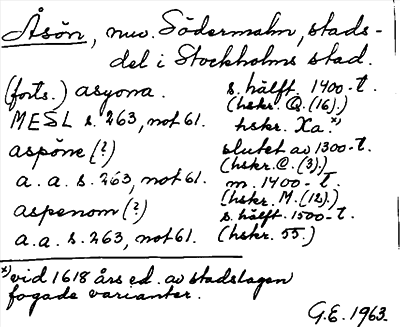 Åsön, nuv. Södermalm, stads-
del i Stockholms stad.
(forts.) asyona. s. hälft. 1400-t.
(hskr. Q. (16).)
MESL s. 263, not 61. hskr. Xa.ˣ⁾
aspöne (?) slutet av 1300-t.
(hskr. C. (3).)
a. a. s. 263, not 61. m. 1400-t.
(hskr. M. (12).)
aspenom (?) s. hälft. 1500-t.
a. a. s. 263, not 61. (hskr. 55.)
ˣ⁾ vid 1618 års ed. av stadslagen
fogade varianter.
G.E. 1963.